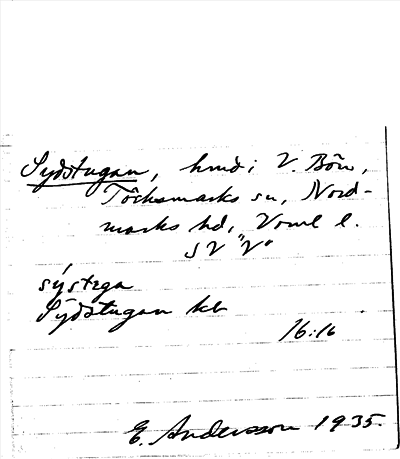 Sydstugan, hmd i V. Bön,
Töcksmarks sn, Nord-
marks hd, Vrml l.
SV "V"
sýstega
Sydstugan kb
16:16
E. Andersson 1935.